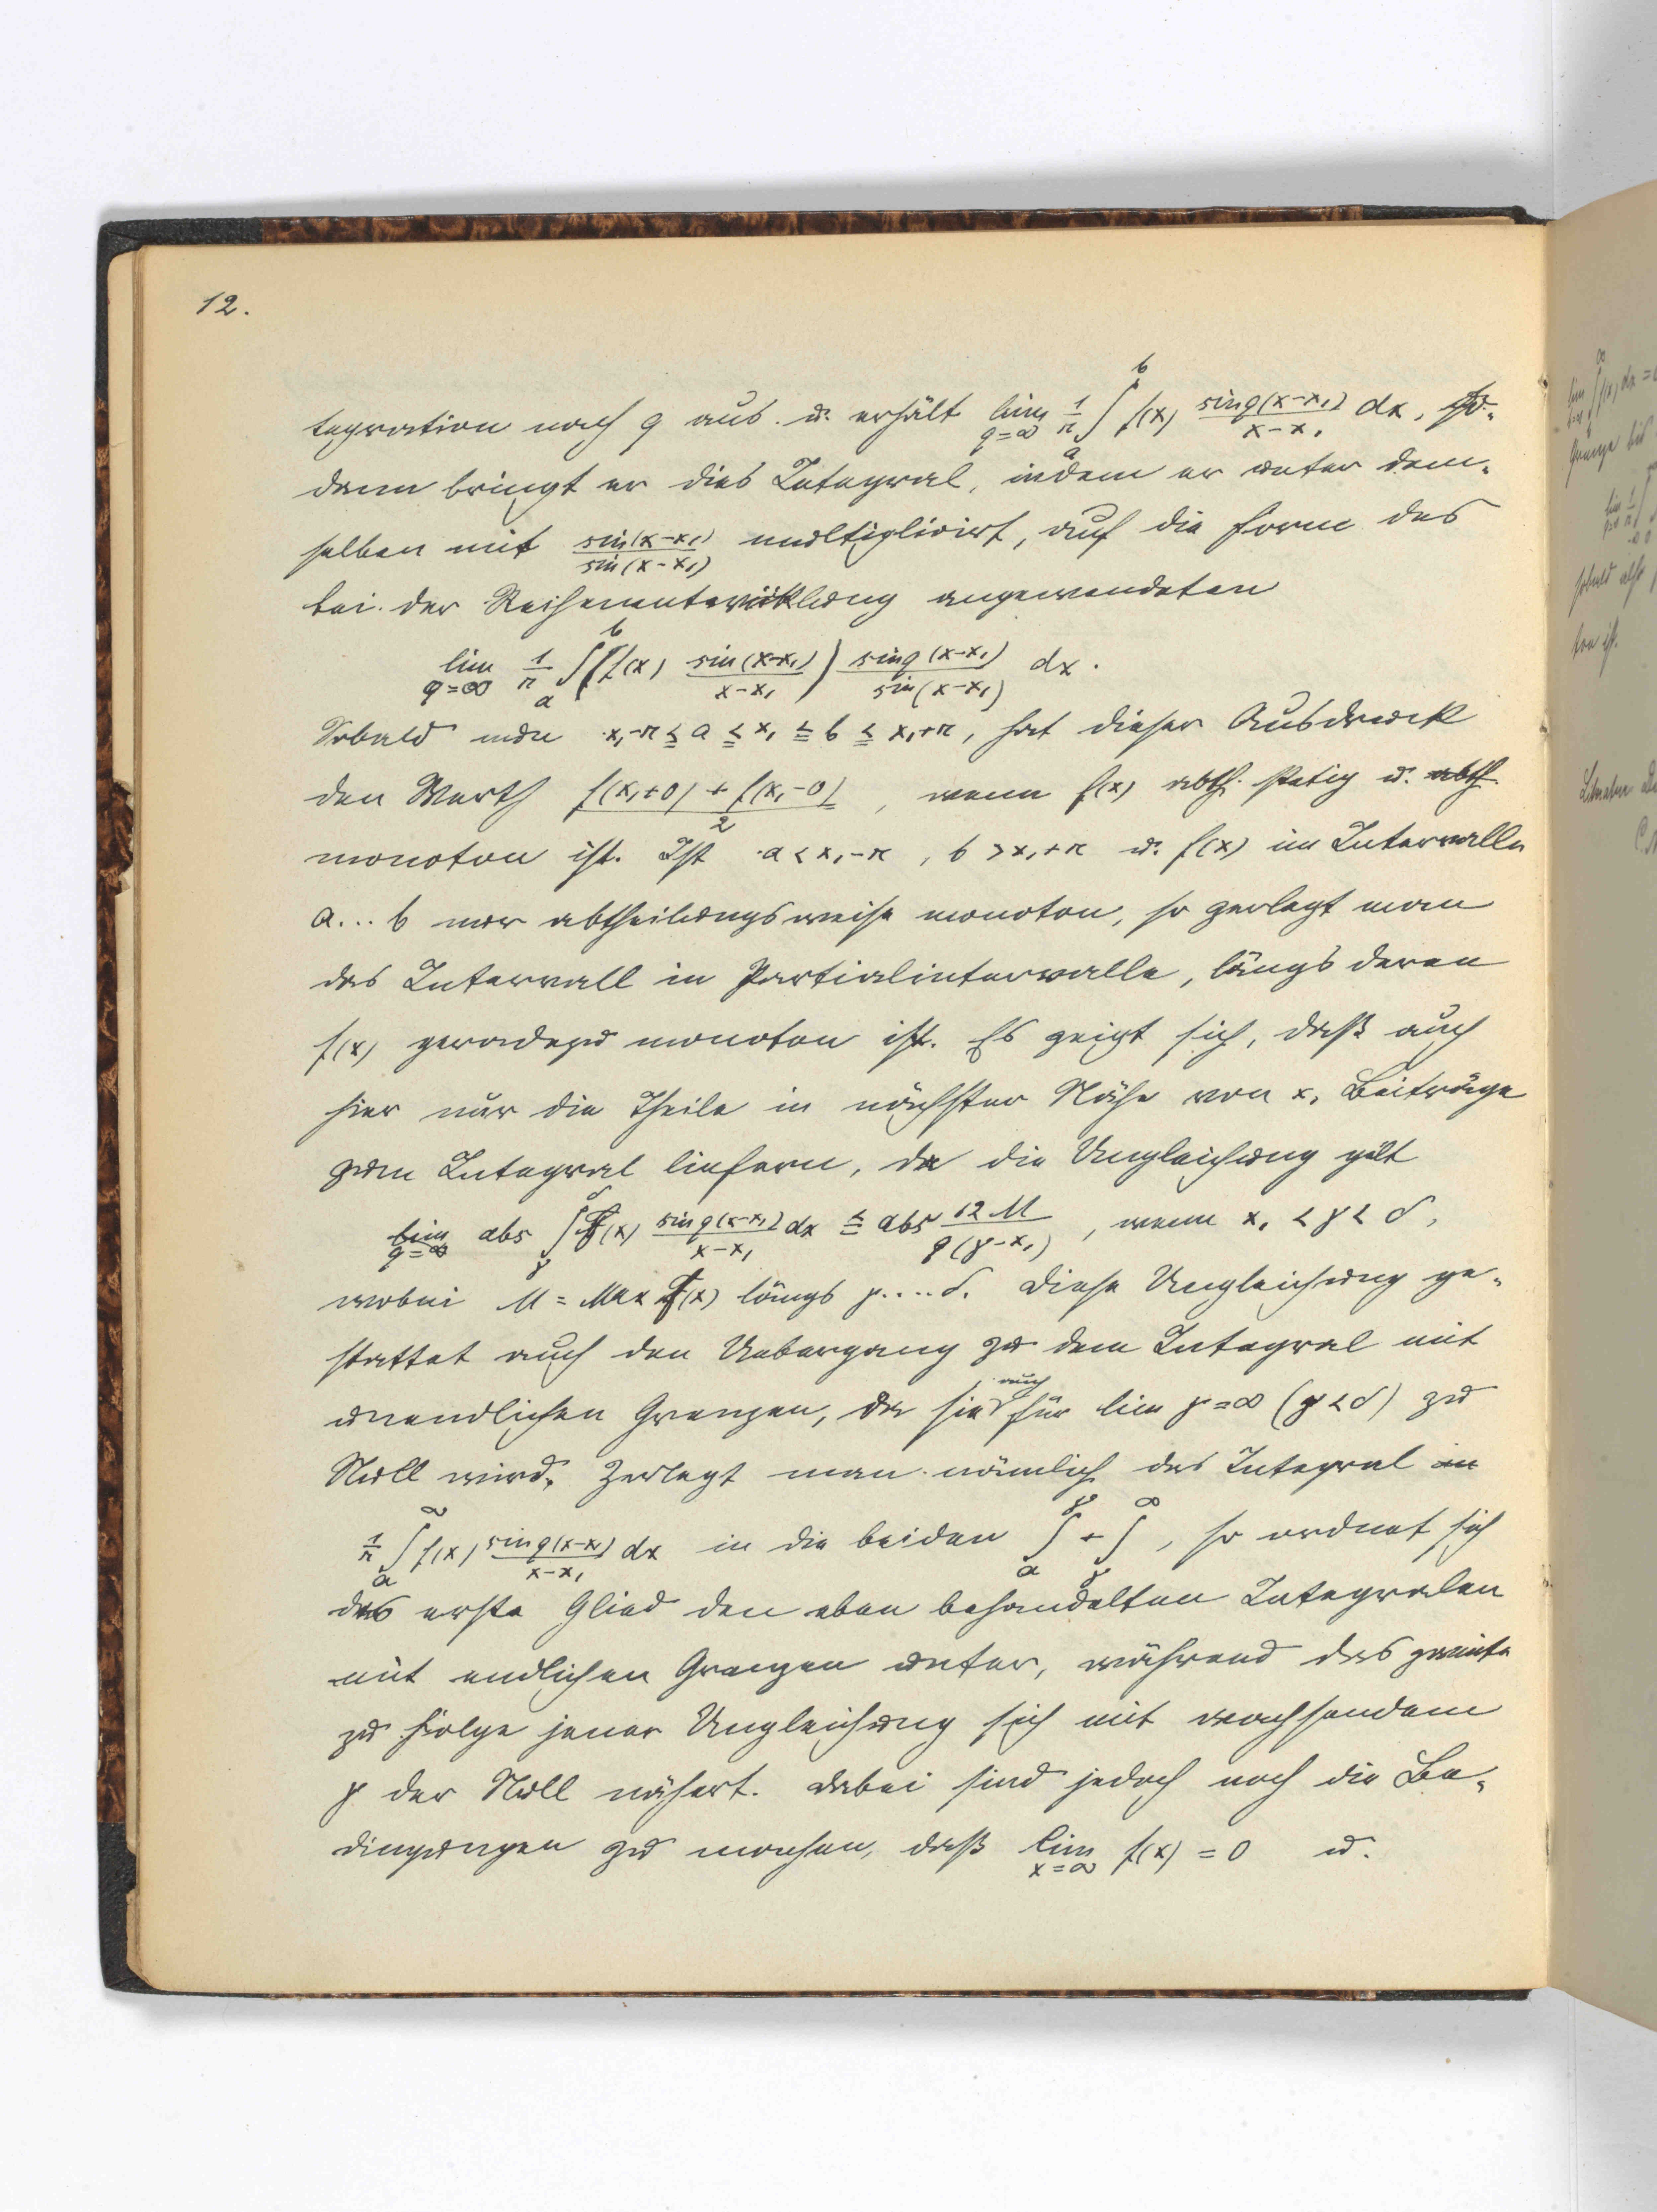 12.
tegration nach q aus u. erhält lim_{q=∞} 1/π ∫_a^b f(x) sin q(x-x₁)/(x-x₁) dx, so-
dann bringt er dies Integral, indem er unter dem-
selben mit sin(x-x₁)/sin(x-x₁) multiplicirt, auf die Form des
bei der Reihenentwicklung angewendeten
lim_{q=∞} 1/π ∫_a^b (f(x) sin(x-x₁)/(x-x₁)) sin q(x-x₁)/sin(x-x₁) dx.
Sobald nun x₁-π ≦ a ≦ x₁ ≦ b ≦ x₁+π, hat dieser Ausdruck
den Werth (f(x₁+0) + f(x₁-0))/2, wenn f(x) abth. stetig u. abth.
monoton ist. Ist a < x₁-π, b > x₁+π u. f(x) im Intervalle
a...b nur abtheilungsweise monoton, so zerlegt man
das Intervall in Partialintervalle, längs deren
f(x) geradezu monoton ist. Es zeigt sich, daß auch
hier nur die Theile in nächster Nähe von x₁ Beiträge
zum Integral liefern, da die Ungleichung gilt
lim_{q=∞} abs ∫_γ^δ f(x) sin q(x-x₁)/(x-x₁) dx ≦ abs 12 M/(q(γ-x₁)), wenn x₁ < γ < δ,
wobei M = Max f(x) längs γ....δ. Diese Ungleichung ge-
stattet auch den Uebergang zu dem Integral mit
unendlichen Grenzen, da sie auch für lim γ = ∞ (γ < δ) zu
Null wird. Zerlegt man nämlich das Integral in
1/π ∫_a^∞ f(x) sin q(x-x₁)/(x-x₁) dx in die beiden ∫_a^γ + ∫_γ^∞, so ordnet sich
das erste Glied den eben behandelten Integralen
mit endlichen Grenzen unter, während das zweite
zu Folge jener Ungleichung sich mit wachsendem
γ der Null nähert. Dabei sind jedoch noch die Be-
dingungen zu machen, daß lim_{x=∞} f(x) = 0 u.